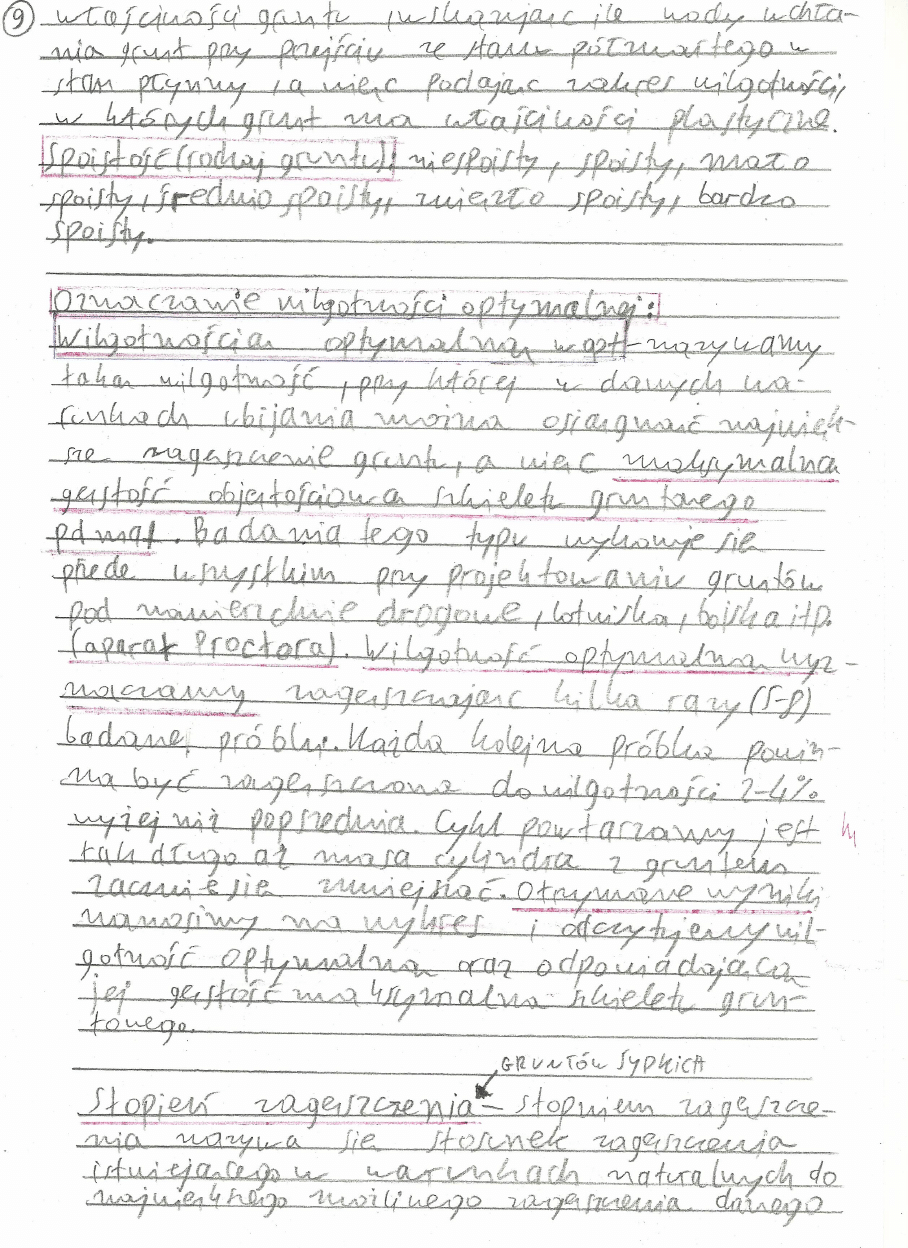 9 właściwości gruntu (wskazując ile wody wchła-
nia grunt przy przejściu ze stanu półzwartego w
stan płynny, a więc podając zakres wilgotności,
w których grunt ma właściwości plastyczne.
Spoistość (rodzaj gruntu): niespoisty, spoisty, mało
spoisty, średnio spoisty, zwięzło spoisty, bardzo
spoisty.
Oznaczanie wilgotności optymalnej:
Wilgotnością optymalną wopt nazywamy
taką wilgotność, przy której w danych wa-
runkach ubijania można osiągnąć najwięk-
sze zagęszczenie gruntu, a więc maksymalną
gęstość objętościową szkieletu gruntowego
ρdmax. Badania tego typu wykonuje się
przede wszystkim przy projektowaniu gruntów
pod nawierzchnie drogowe, lotniska, boiska itp.
(aparat Proctora). Wilgotność optymalną wyz-
naczamy zagęszczając kilka razy (5-8)
badanej próbki. Każda kolejna próbka powin-
na być zagęszczona do wilgotności 2-4%
wyżej niż poprzednia. Cykl powtarzamy jest
tak długo aż masa cylindra z gruntem
zacznie się zmniejszać. Otrzymane wyniki
nanosimy na wykres i odczytujemy wil-
gotność optymalną oraz odpowiadającą
jej gęstość maksymalną szkieletu grun-
towego.
GRUNTÓW SYPKICH
Stopień zagęszczenia - stopniem zagęszcze-
nia nazywa się stosunek zagęszczenia
istniejącego w warunkach naturalnych do
największego możliwego zagęszczenia danego